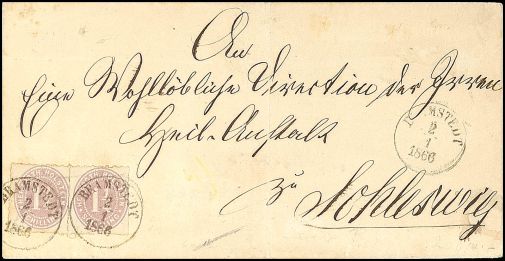 An
Eine Wohllöbliche Direction der Irren
Heil-Anstalt
zu
Schleswig
BRAMSTEDT
2
1
1866
BRAMSTEDT
2
1
1866
BRAMSTEDT
2
1
1866